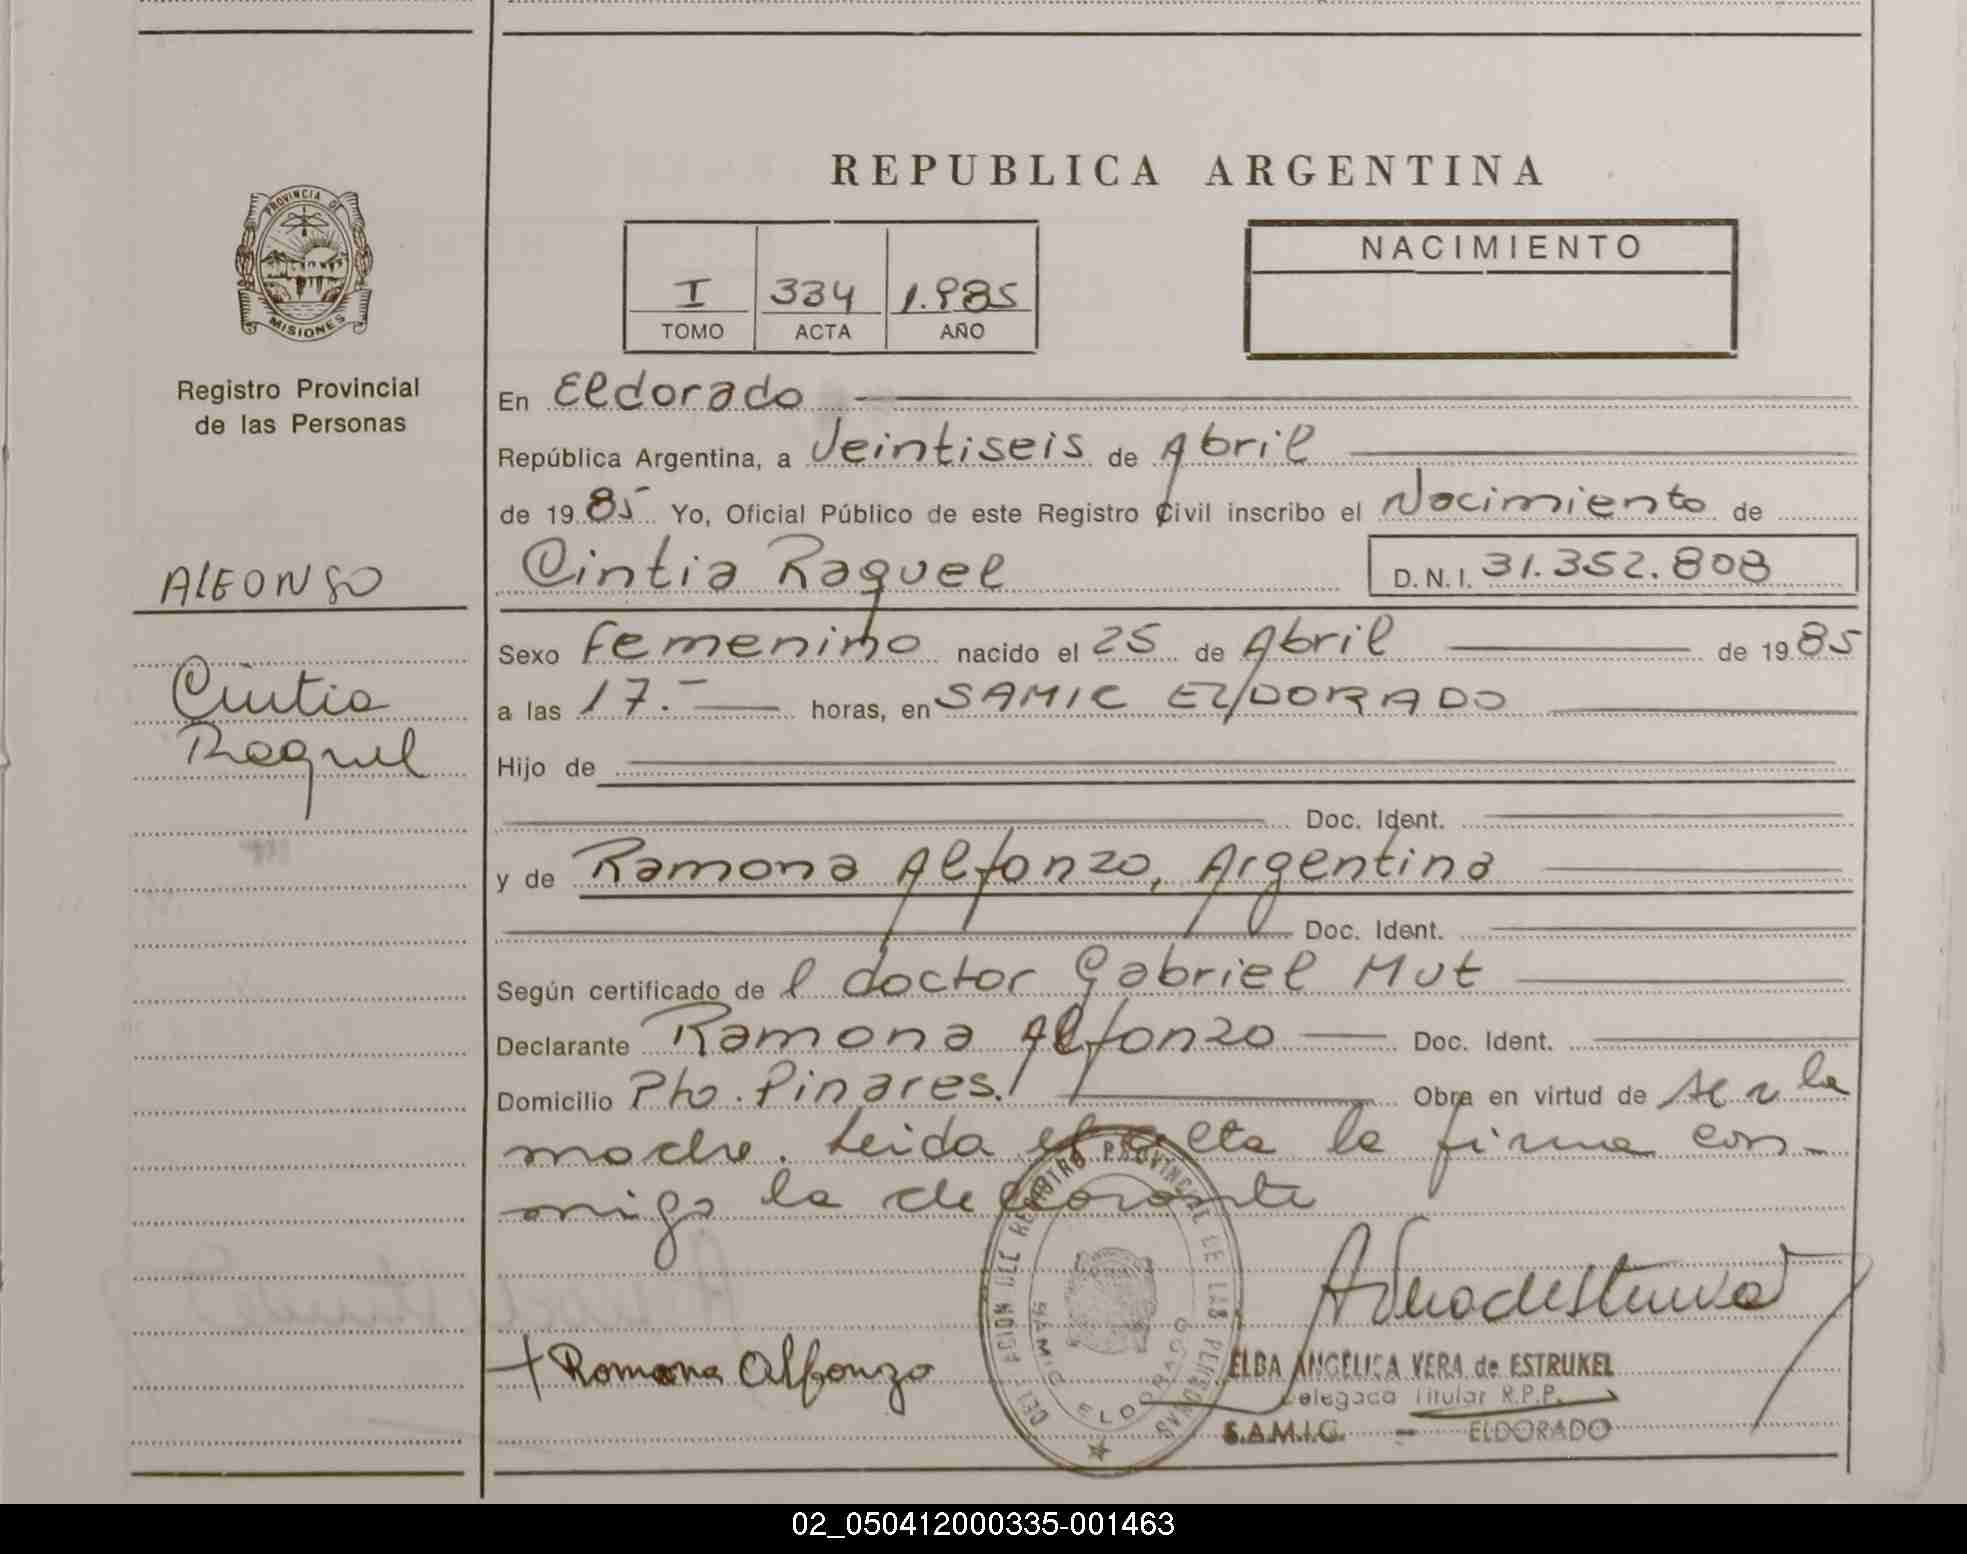 REPUBLICA ARGENTINA
PROVINCIA DE
MISIONES
Registro Provincial
de las Personas
I 334 1.985
TOMO ACTA AÑO
NACIMIENTO
En Eldorado
República Argentina, a Veintiseis de Abril
de 1985 Yo, Oficial Público de este Registro Civil inscribo el Nacimiento de
Cintia Raquel D.N.I. 31.352.808
ALFONSO
Cintia
Raquel
Sexo Femenino nacido el 25 de Abril de 1985
a las 17.- horas, en SAMIC ELDORADO
Hijo de
Doc. Ident.
y de Ramona Alfonzo, Argentina
Doc. Ident.
Según certificado de l doctor Gabriel Mut
Declarante Ramona Alfonzo Doc. Ident.
Domicilio Pto. Pinares. Obra en virtud de ser la
madre. Leida el acta la firma con-
migo la declarante
+ Romona Alfonzo
DELEGACION DEL REGISTRO PROVINCIAL DE LAS PERSONAS
SAMIC ELDORADO
ELBA ANGELICA VERA de ESTRUKEL
Delegada Titular R.P.P.
S.A.M.I.C. - ELDORADO
02_050412000335-001463